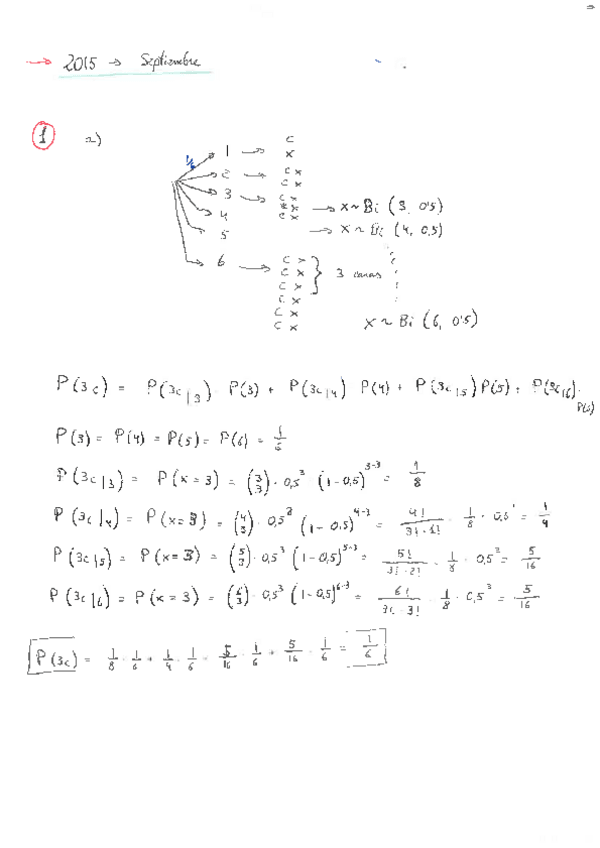 → 2015 → Septiembre
1 a)
1/6 1 → c x
2 → c x c x
3 → c x c x c x → x ~ Bi (3, 0'5)
4 → x ~ Bi (4, 0,5)
5
6 → c x c x c x } 3 caras
c x c x c x x ~ Bi (6, 0'5)
P(3c) = P(3c|3) · P(3) + P(3c|4) P(4) + P(3c|5) P(5) + P(3c|6) · P(6)
P(3) = P(4) = P(5) = P(6) = 1/6
P(3c|3) = P(x = 3) = (3 3) · 0,5³ (1-0,5)³⁻³ = 1/8
P(3c|4) = P(x = 3) = (4 3) · 0,5³ (1-0,5)⁴⁻³ = 4!/3! · 1! · 1/8 · 0,5¹ = 1/4
P(3c|5) = P(x = 3) = (5 3) · 0,5³ (1-0,5)⁵⁻³ = 5!/3! · 2! · 1/8 · 0,5² = 5/16
P(3c|6) = P(x = 3) = (6 3) · 0,5³ (1-0,5)⁶⁻³ = 6!/3! · 3! · 1/8 · 0,5³ = 5/16
P(3c) = 1/8 · 1/6 + 1/4 · 1/6 + 5/16 · 1/6 + 5/16 · 1/6 = 1/6